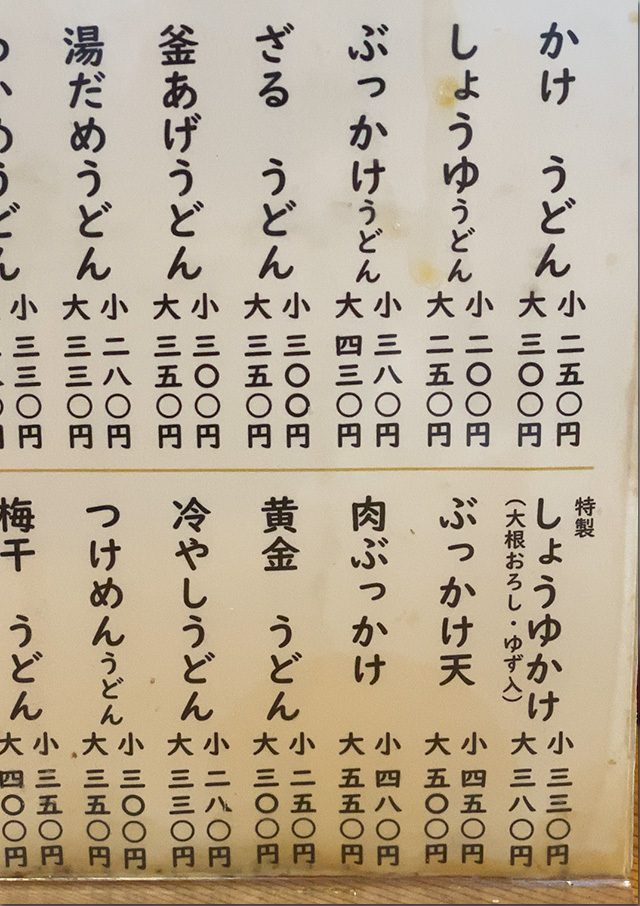 かけ うどん
小 二五〇円
大 三〇〇円
しょうゆうどん
小 二〇〇円
大 二五〇円
ぶっかけうどん
小 三八〇円
大 四三〇円
ざる うどん
小 三〇〇円
大 三五〇円
釜あげうどん
小 三〇〇円
大 三五〇円
湯だめうどん
小 二八〇円
大 三三〇円
小 三三〇円
特製
しょうゆかけ
(大根おろし・ゆず入)
小 三三〇円
大 三八〇円
ぶっかけ天
小 四五〇円
大 五〇〇円
肉ぶっかけ
小 四八〇円
大 五五〇円
黄金 うどん
小 二五〇円
大 三〇〇円
冷やしうどん
小 二八〇円
大 三三〇円
つけめんうどん
小 三〇〇円
大 三五〇円
梅干 うどん
小 三五〇円
大 四〇〇円